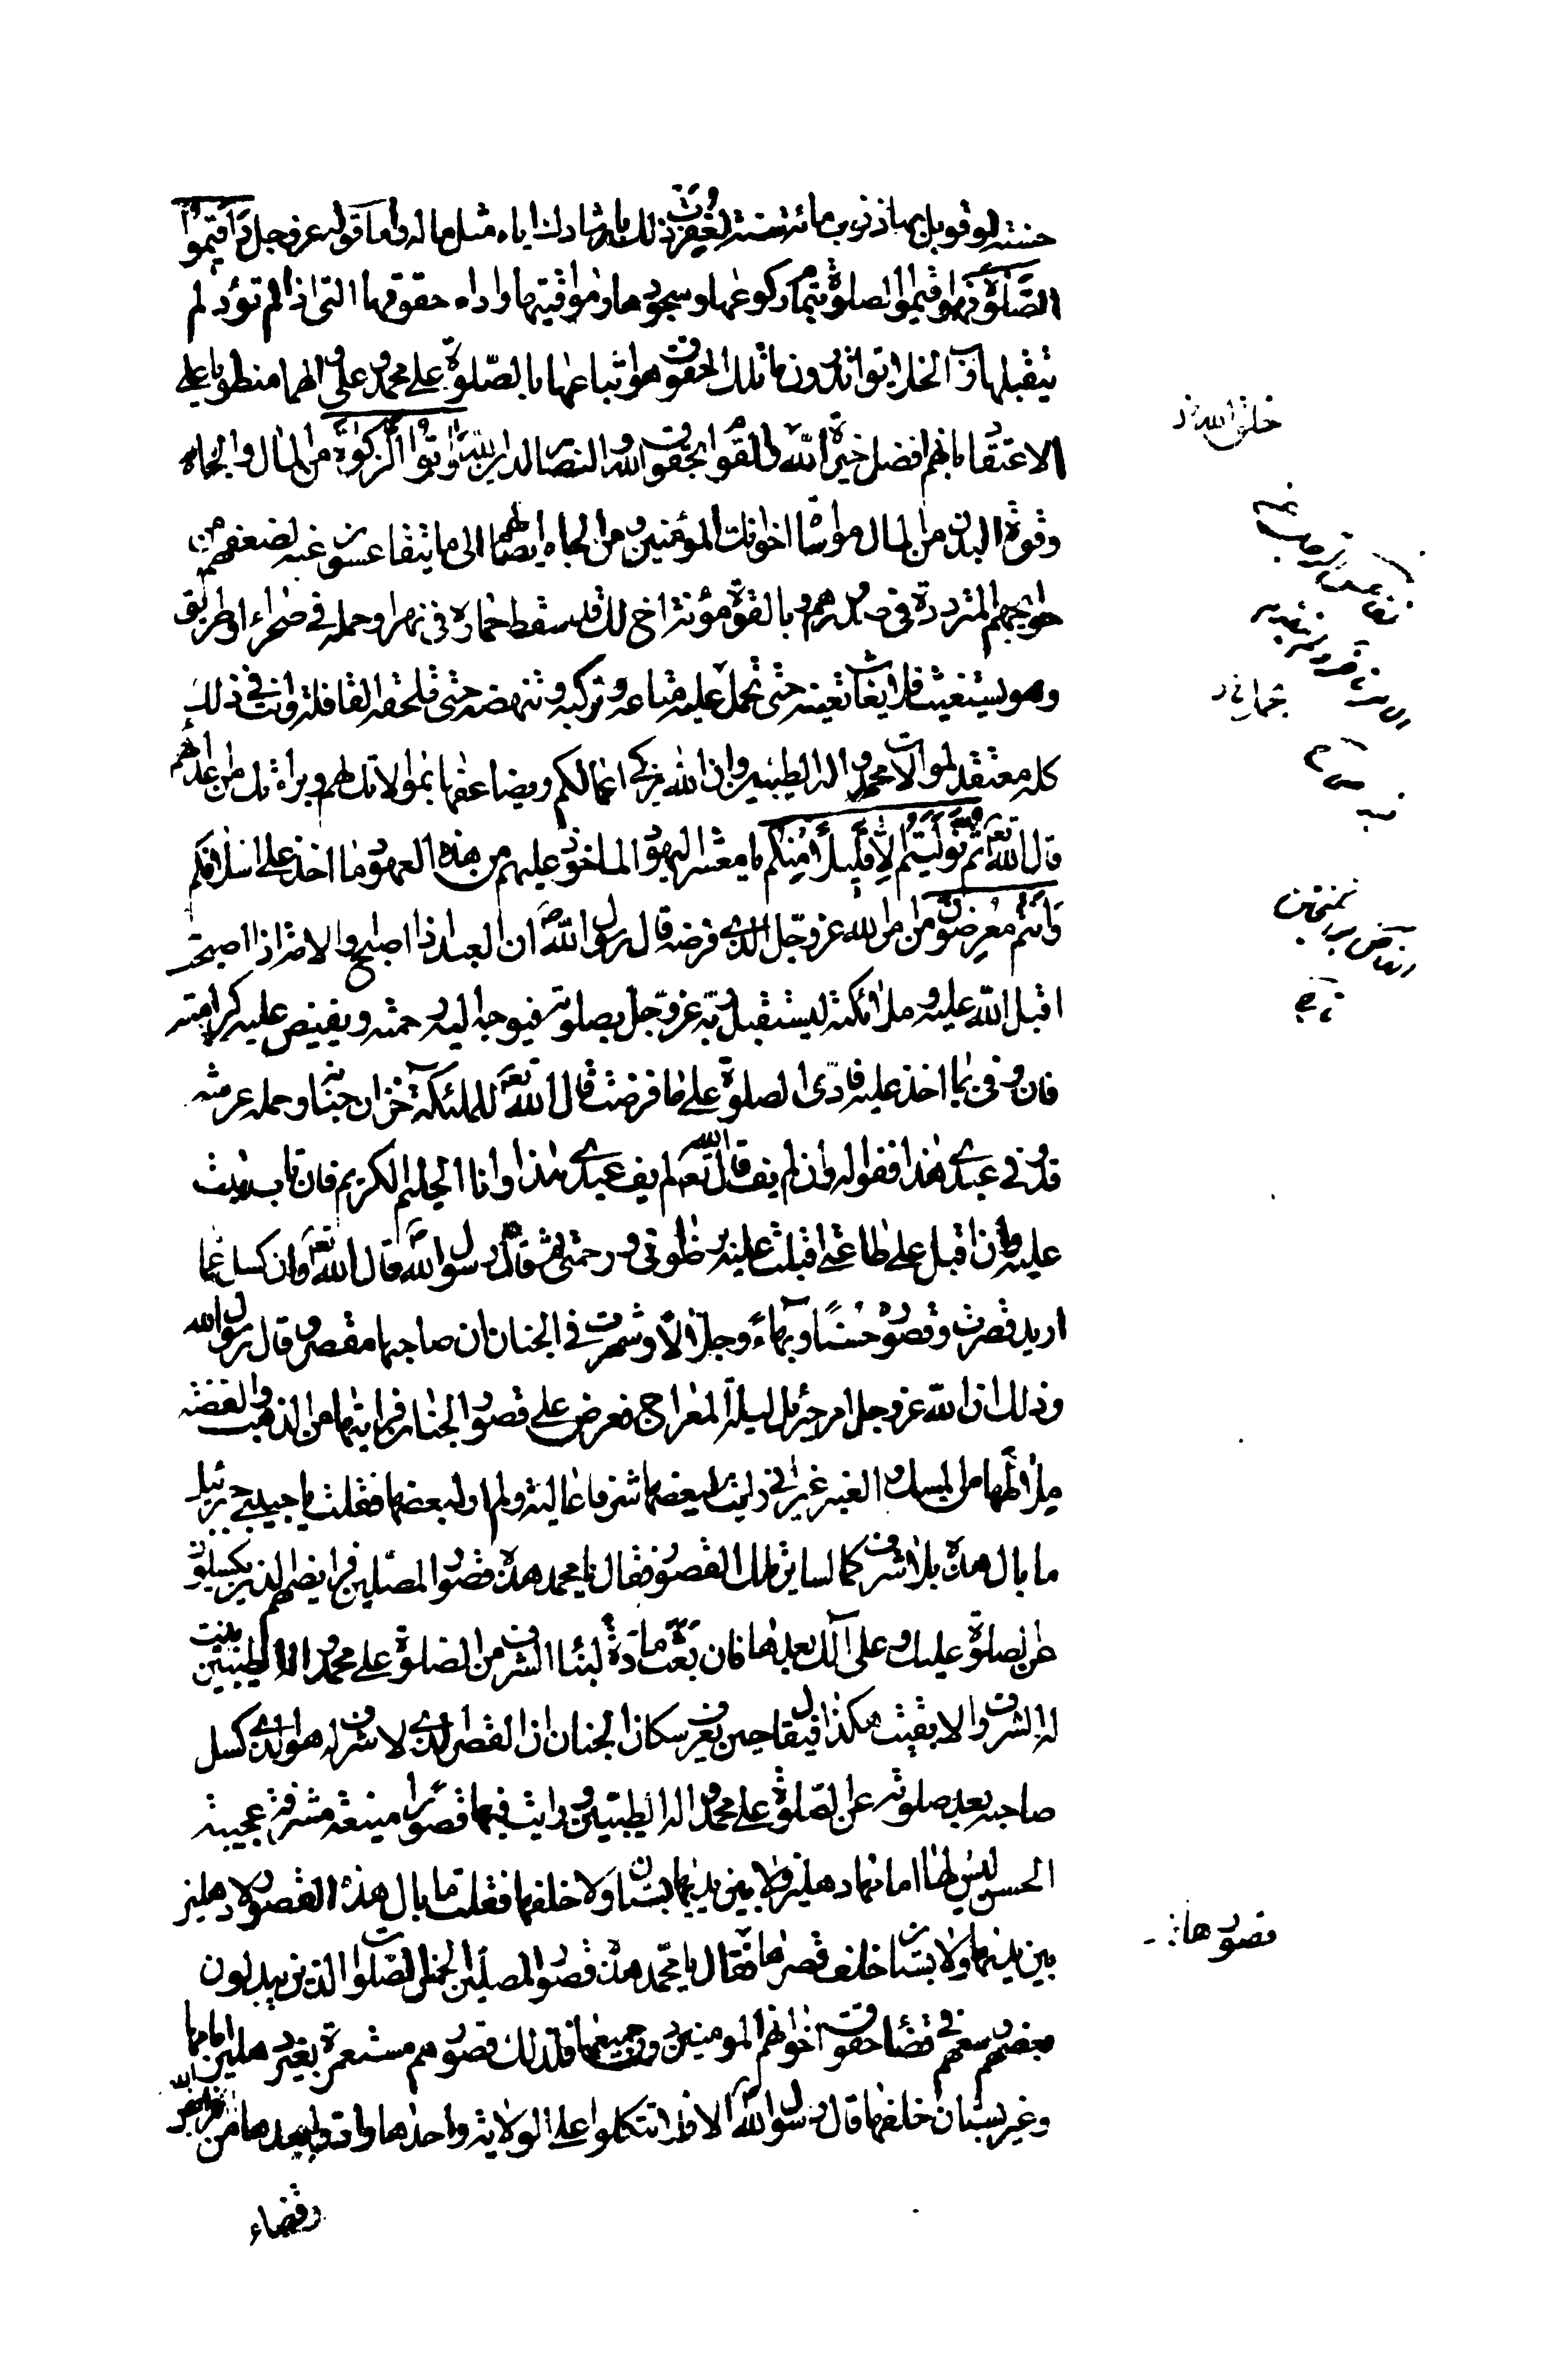 حسنته لو قوبل بها ذنوب مائة سنة لغفرت ذلك بارشادك اياه مثل ما له واما قوله عز وجل واقيموا
الصلوة فهو اقيموا الصلوة بتمام ركوعها وسجودها ومواقيتها واداء حقوقها التى اذا لم تؤد لم
يتقبلها رب الخلائق اتدرون ما تلك الحقوق هو اتباعها بالصلوة على محمد وعلى والهما منطويا على
الاعتقاد بانهم افضل خيرة الله والقوام بحقوق الله والنصار لدين الله واتوا الزكوة من المال والجاه
وقوة البدن من المال مواساة اخوانك المؤمنين ومن الجاه ايصالهم الى ما يتقاعسون عنه لضعفهم من
حوايجهم المترددة فى صدورهم وبالقوة معونة اخ لك قد سقط حماره فى نهر او حمله فى صحراء او طريق
وهو يستغيث فلا يغاث تعينه حتى تحمل عليه متاعه وتركبه وتنهضه حتى تلحقه القافلة وانت فى ذلك
كله معتقد لموالاة محمد واله الطيبين وان الله يزكى اعمالكم ويضاعفها بموالاتك لهم وبراءتك من اعدائهم
قال الله تع ثم توليتم الا قليلا منكم يا معشر اليهود الماخوذ عليهم من هذه العهود كما اخذ على اسلافكم
وانتم معرضون من امر الله عز وجل الذى فرضه قال رسول الله ص ان العبد اذا اصبح والامة اذا اصبحت
اقبل الله عليه وملائكته ليستقبل ربه عز وجل بصلوته فيوجه اليه رحمته ويفيض عليه كرامته
فان وفى بما اخذ عليه فادى الصلوة على ما فرضت قال الله تع للملئكة خزان جنانه وحملة عرشه
قد وفى عبدى هذا ففوا له وان لم يف قال الله تع لم يف عبدى هذا وانا الحليم الكريم فان تاب تبت
عليه وان اقبل على طاعتى اقبلت عليه برضوانى ورحمتى ثم قال رسول الله ص قال الله تع وان كسل عما
اريد قصرت فى قصوره حسنا وبهاء وجلالا وشهرت فى الجنان ان صاحبها مقصر وقال رسول الله
وذلك ان الله عز وجل امر جبرئيل ليلة المعراج فعرض على قصور الجنان فرايتها من الذهب والفضة
ملاطها من المسك والعنبر غير انى رايت لبعضها شرفا عالية ولم ار لبعضها فقلت يا حبيبى جبرئيل
ما بال هذه بلا شرف كما لسائر تلك القصور فقال يا محمد هذه قصور المصلين فرايضهم الذين يكسلون
عن الصلوة عليك وعلى آلك بعدها فان بعث مادة لبناء الشرف من الصلوة على محمد واله الطيبين بنيت
له الشرف والا بقيت هكذا فيقال حين يعرف سكان الجنان ان القصر الذى لا شرف له هو الذى كسل
صاحبه بعد صلوته عن الصلوة على محمد واله الطيبين ورايت فيها قصورا منيعة مشرفة عجيبة
الحسن ليس لها امامها دهليز ولا بين يديها بستان ولا خلفها فقلت ما بال هذه القصور لا دهليز
بين يديها ولا بستان خلف قصرها فقال يا محمد هذه قصور المصلين الخمس الصلوات الذين يبذلون
بعض وسعهم فى قضاء حقوق اخوانهم المومنين دون جميعها فلذلك قصورهم مستعمرة بغير دهليز امامها
وغير بستان خلفها قال رسول الله ص الا فلا تتكلوا على الولاية وحدها وادوا ما بعدها من فرائض الله
وقضاء
خلق الله
قصورها